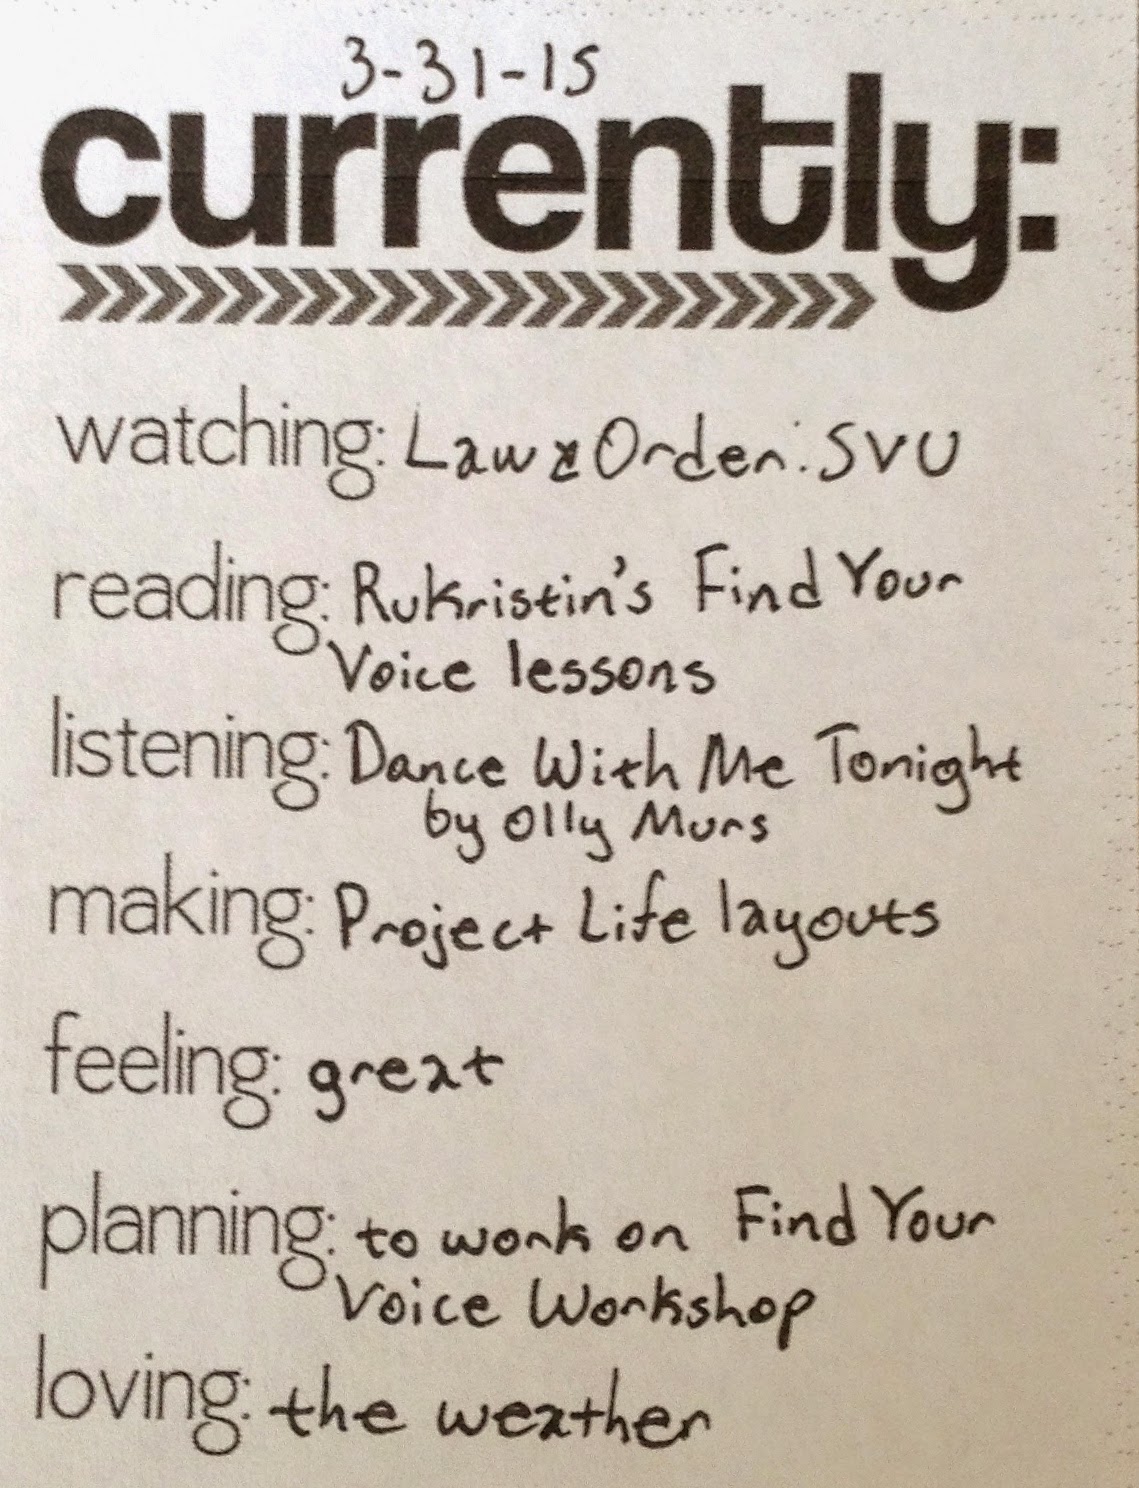 3-31-15
currently:
watching: Law & Order: SVU
reading: Rukristin's Find Your
Voice lessons
listening: Dance With Me Tonight
by Olly Murs
making: Project Life layouts
feeling: great
planning: to work on Find Your
Voice Workshop
loving: the weather